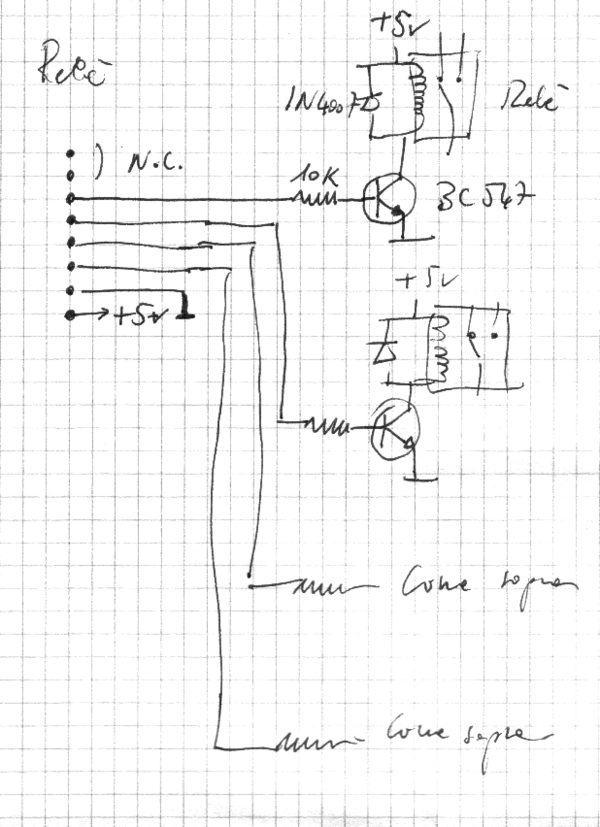 Relè
+5v
1N4007
Relè
) N.C.
10K
BC547
+5v
→+5v
Come sopra
Come sopra